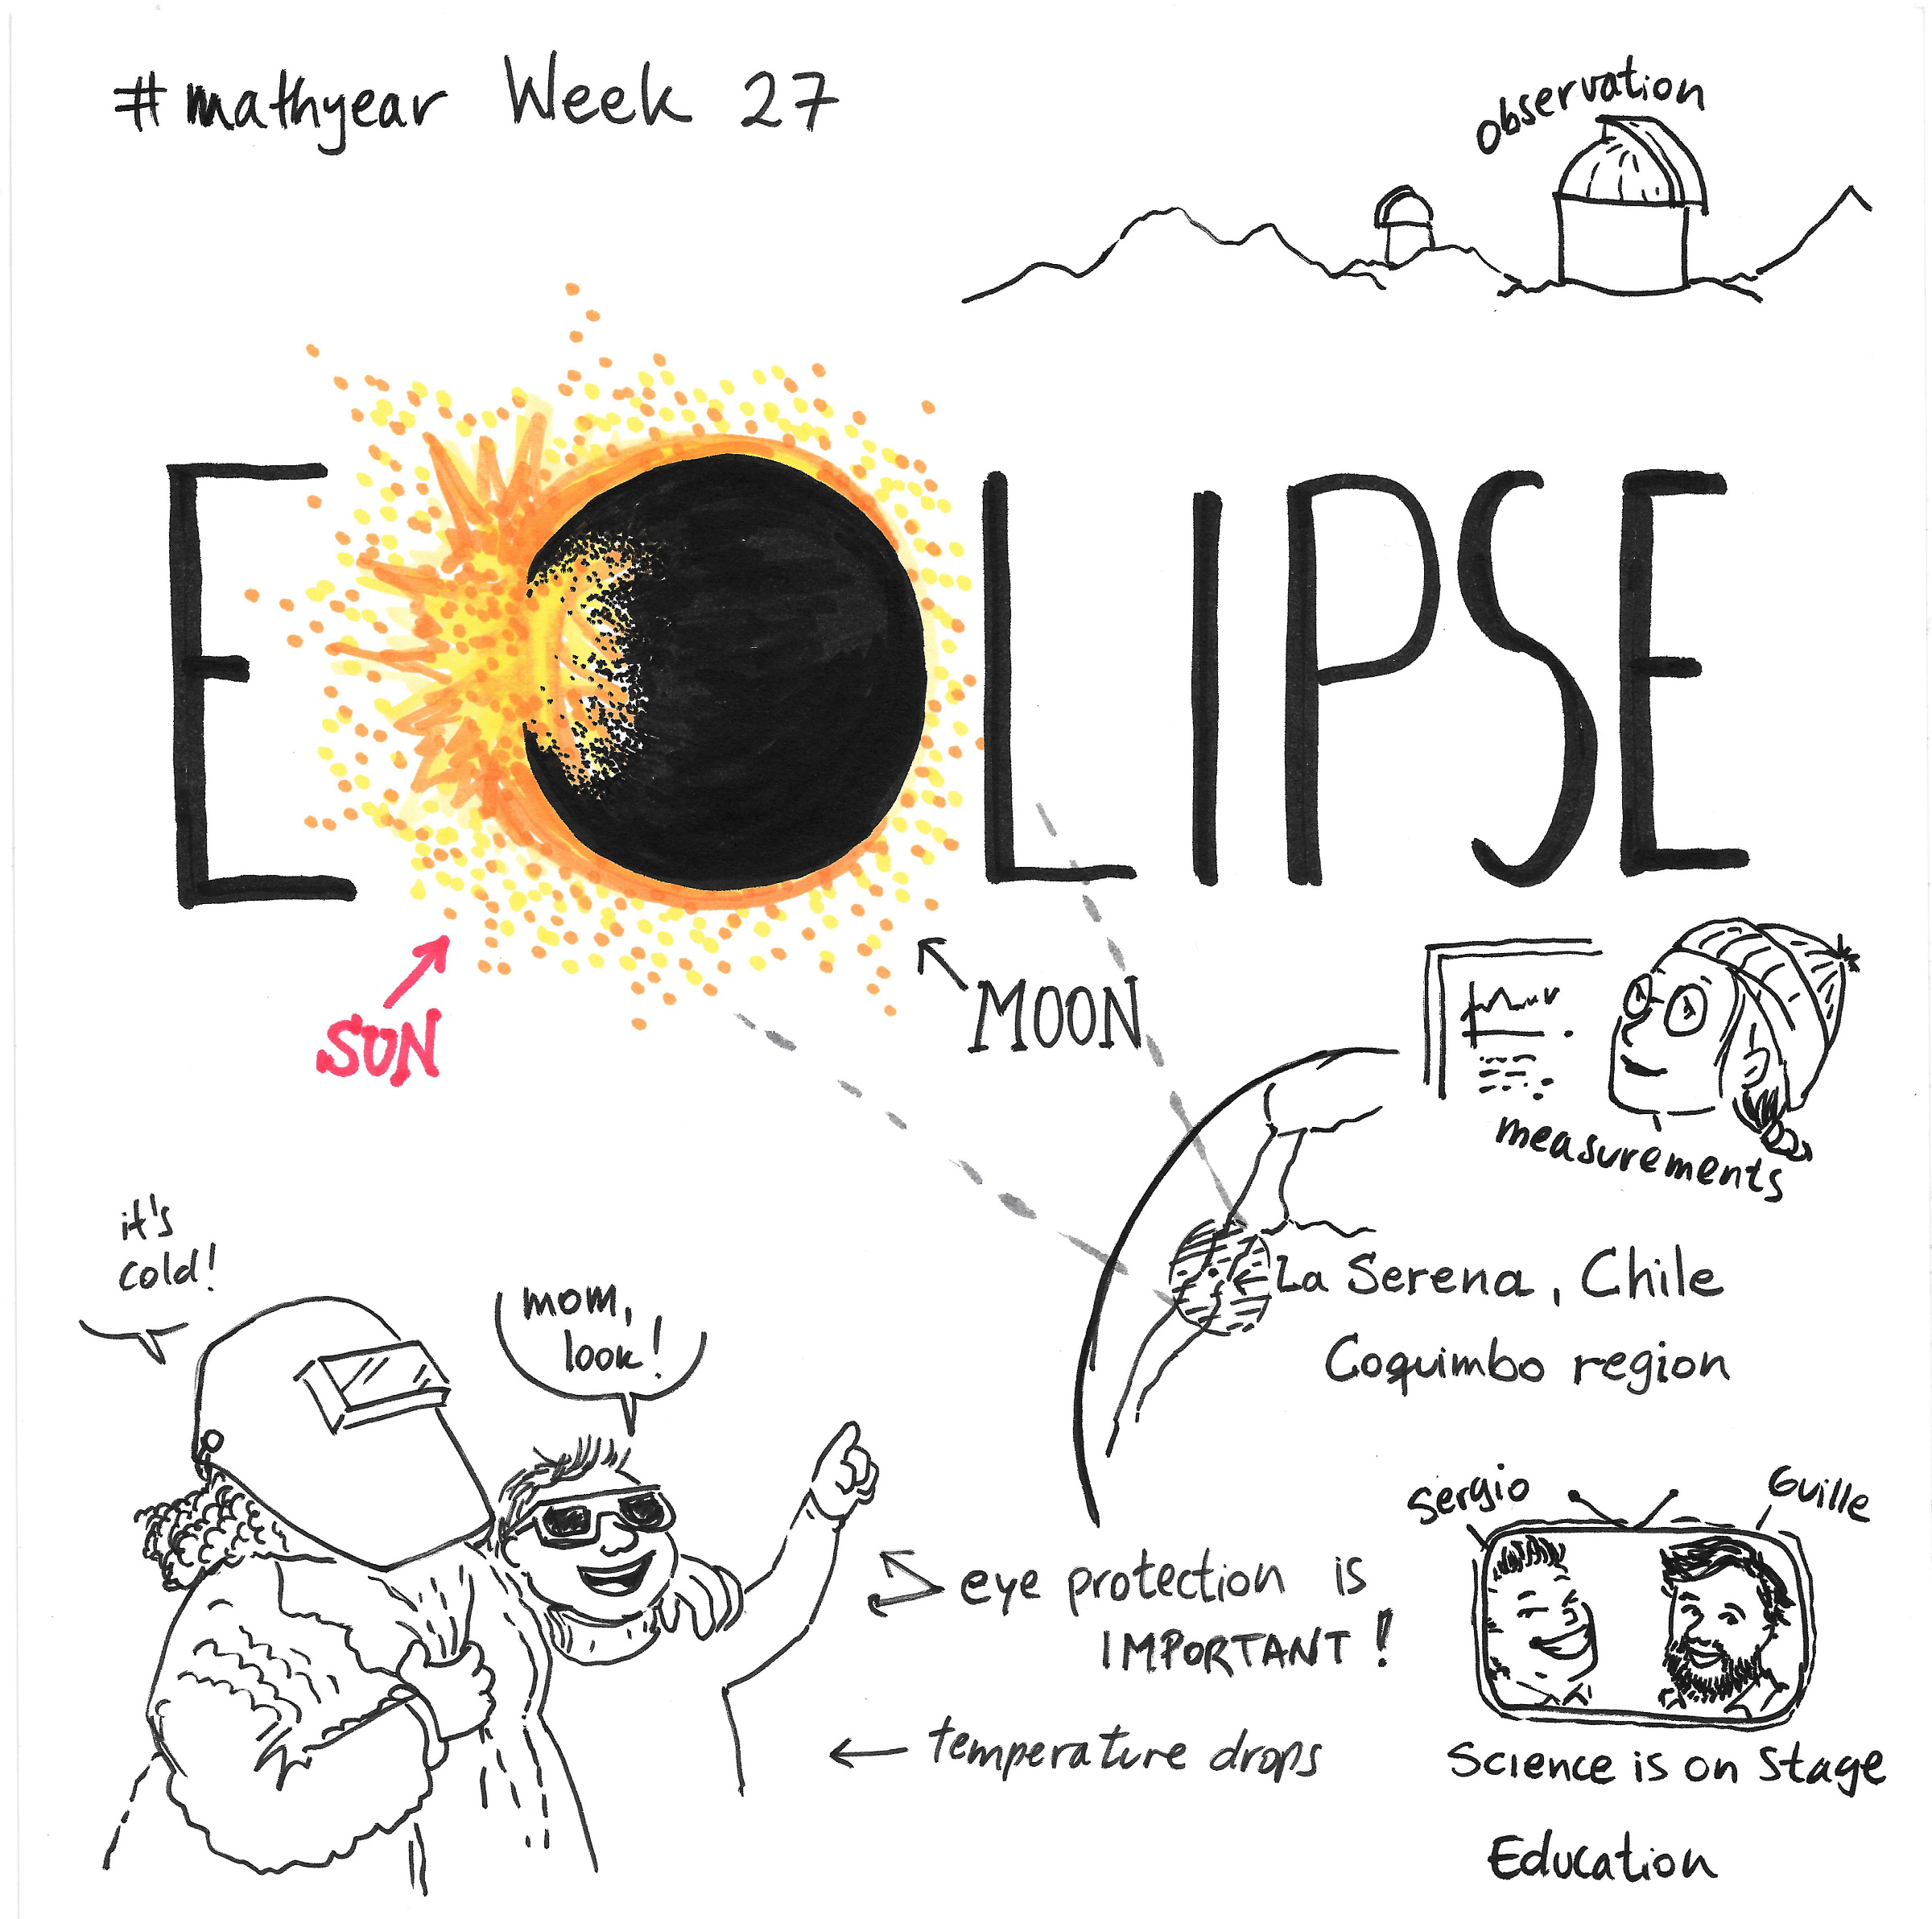 #mathyear Week 27
observation
ECLIPSE
SUN
MOON
measurements
La Serena, Chile
Coquimbo region
it's
cold!
mom,
look!
eye protection is
IMPORTANT!
temperature drops
Sergio
Guille
Science is on stage
Education